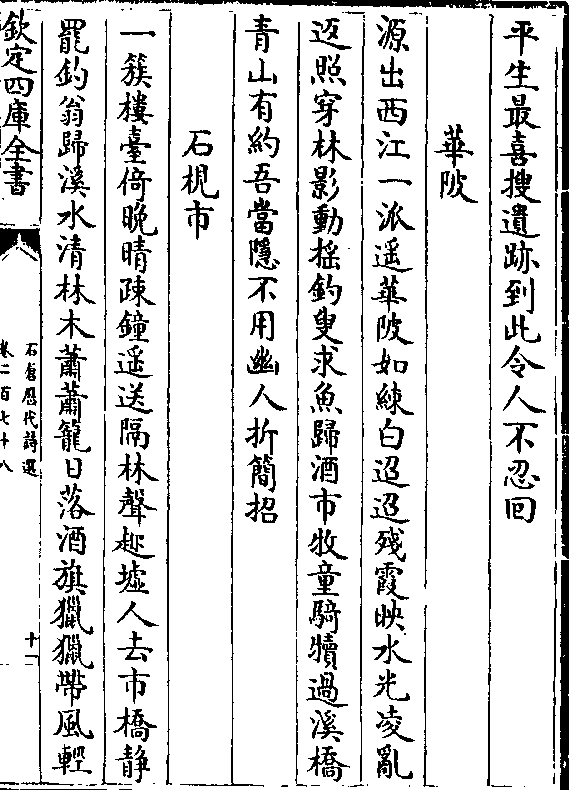 平生最喜搜遺跡到此令人不忍回
華陂
源出西江一派遥華陂如練白迢迢殘霞映水光凌亂
返照穿林影動摇釣叟求魚歸酒市牧童騎犢過溪橋
青山有約吾當隱不用幽人折簡招
石梘市
一簇樓臺倚晚晴疎鐘遥送隔林聲趂墟人去市橋静
罷釣翁歸溪水清林木蕭蕭籠日落酒旗獵獵帶風輕
欽定四庫全書
石倉歴代詩選
卷二百七十八
十一